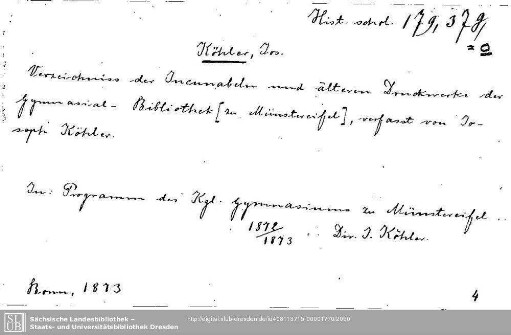 Hist. schol. 179, 379,
= 0
Köhler, Jos.
Verzeichniss der Incunabeln und älteren Druckwerke der
Gymnasial- Bibliothek [zu Münstereifel], verfasst von Jo-
seph Köhler.
In: Programm des Kgl. Gymnasiums zu Münstereifel
1872/1873 Dir. J. Köhler.
Bonn, 1873
4
SLUB
Sächsische Landesbibliothek –
Staats- und Universitätsbibliothek Dresden